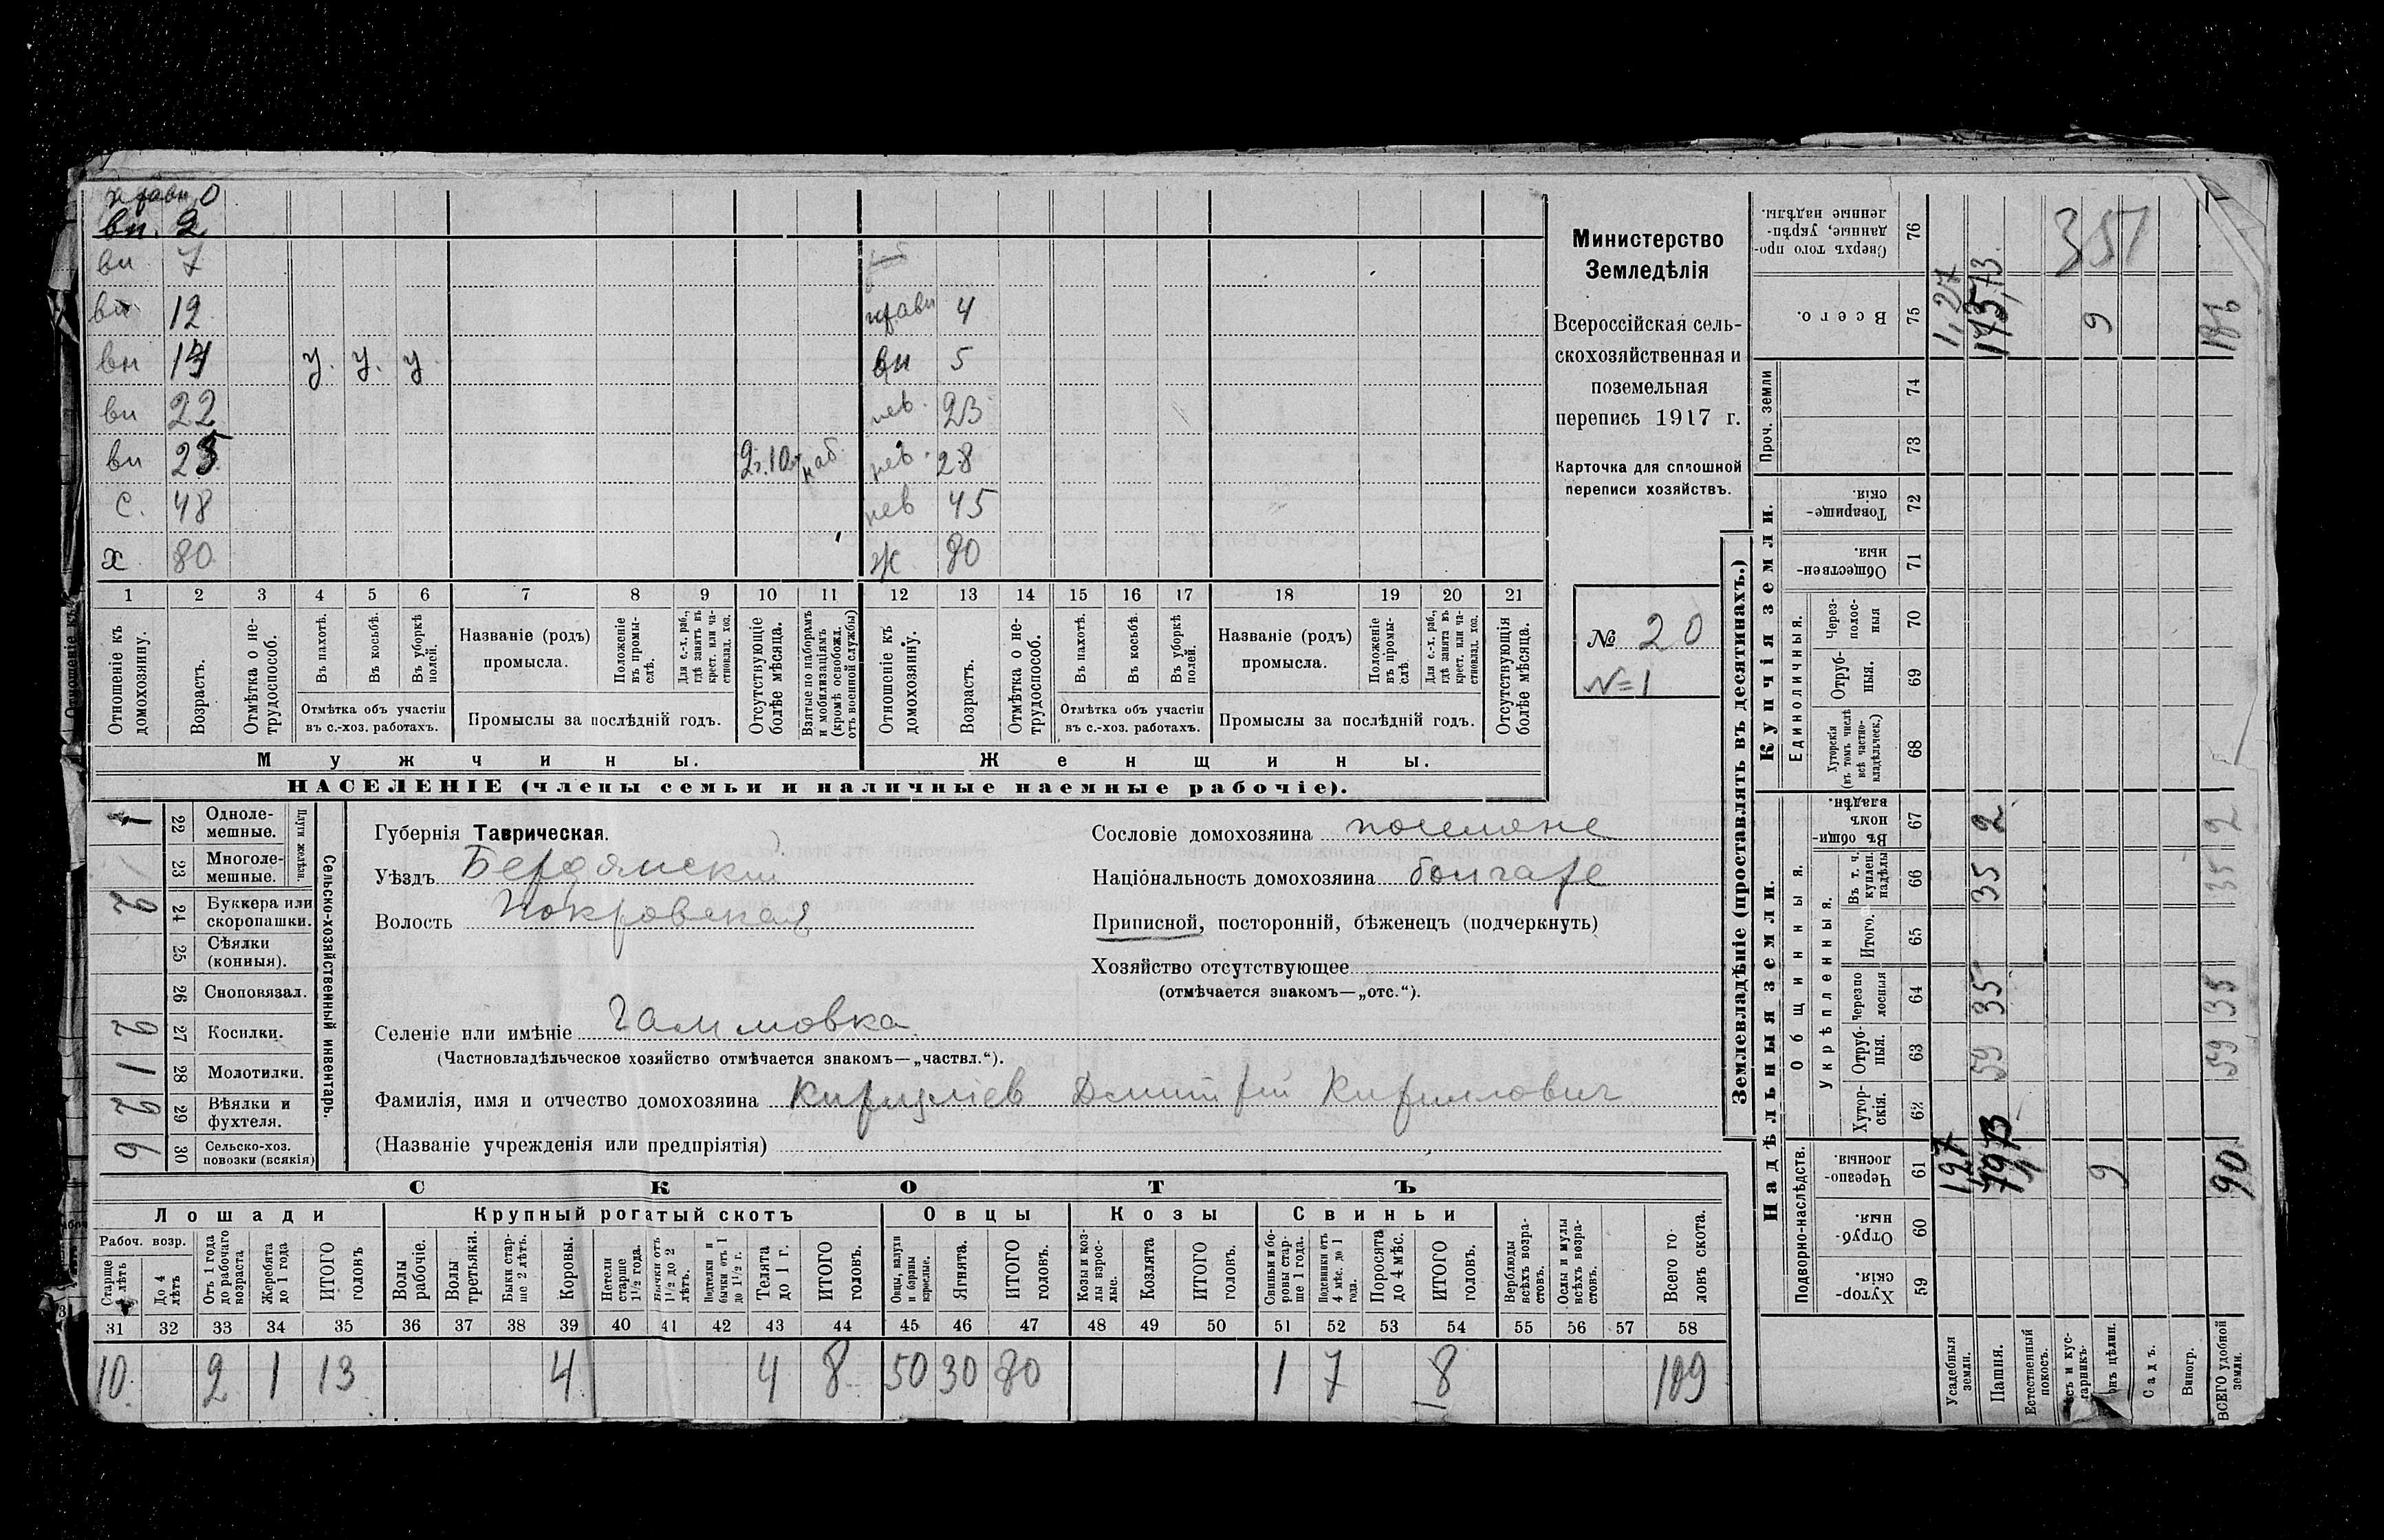 правн 0
вн. 2
вн 7
вн 12
правн 4
вн 14 у. у. у
вн 5
вн 22
нев. 23
вн 25 2г.10м наб.
нев. 28
С. 48
нев 45
х 80
ж 80
1 2 3 4 5 6 7 8 9 10 11 12 13 14 15 16 17 18 19 20 21
Отношеніе къ домохозяину.
Возрастъ.
Отмѣтка о нетрудоспособ.
Въ пахотѣ.
Въ косьбѣ.
Въ уборкѣ полей.
Отмѣтка объ участіи
въ с.-хоз. работахъ.
Названіе (родъ)
промысла.
Положеніе въ промыслѣ.
Для с.-х. раб., гдѣ занятъ въ крест. или частновлад. хоз.
Промыслы за послѣдній годъ.
Отсутствующіе болѣе мѣсяца.
Взятые по наборамъ и мобилизаціямъ (кромѣ освобожд. отъ военной службы)
Отношеніе къ домохозяину.
Возрастъ.
Отмѣтка о нетрудоспособ.
Въ пахотѣ.
Въ косьбѣ.
Въ уборкѣ полей.
Отмѣтка объ участіи
въ с.-хоз. работахъ.
Названіе (родъ)
промысла.
Положеніе въ промыслѣ.
Для с.-х. раб., гдѣ занята въ крест. или частновлад. хоз.
Промыслы за послѣдній годъ.
Отсутствующія болѣе мѣсяца.
Мужчины.
Женщины.
НАСЕЛЕНІЕ (члены семьи и наличные наемные рабочіе).
Министерство
Земледѣлія
Всероссійская сель-
скохозяйственная и
поземельная
перепись 1917 г.
Карточка для сплошной
переписи хозяйствъ.
№ 20
N=1
1 22 Однолемешные.
23 Многолемешные.
Плуги желѣзн.
2 24 Буккера или скоропашки.
25 Сѣялки (конныя).
26 Сноповязал.
2 27 Косилки.
1 28 Молотилки.
2 29 Вѣялки и фухтеля.
9 30 Сельско-хоз. повозки (всякія)
Сельско-хозяйственный инвентарь.
Губернія Таврическая.
Уѣздъ Бердянскій
Волость Покровская
Селеніе или имѣніе
(Частновладѣльческое хозяйство отмѣчается знакомъ—„частвл.“).
Фамилія, имя и отчество домохозяина Дмитрій Кирилович
(Названіе учрежденія или предпріятія)
Сословіе домохозяина поселяне
Національность домохозяина болгаре
Приписной, посторонній, бѣженецъ (подчеркнуть)
Хозяйство отсутствующее
(отмѣчается знакомъ—„отс.“).
СКОТЪ
Лошади
Крупный рогатый скотъ
Овцы
Козы
Свиньи
Рабоч. возр.
Старше 4 лѣтъ
До 4 лѣтъ
Отъ 1 года до рабочаго возраста
Жеребята до 1 года
ИТОГО головъ
Волы рабочіе.
Волы третьяки.
Быки старше 2 лѣтъ.
Коровы.
Нетели старше 1½ года.
Бычки отъ 1½ до 2 лѣтъ.
Подтелки и бычки отъ 1 до 1½ г.
Телята до 1 г.
ИТОГО головъ.
Овцы, валухи и бараны взрослые.
Ягнята.
ИТОГО головъ.
Козы и козлы взрослые.
Козлята
ИТОГО головъ.
Свиньи и боровы старше 1 года.
Подсвинки отъ 4 мѣс. до 1 года.
Поросята до 4 мѣс.
ИТОГО головъ.
Верблюды всѣхъ возрастовъ.
Ослы и мулы всѣхъ возрастовъ.
Всего головъ скота.
31 32 33 34 35 36 37 38 39 40 41 42 43 44 45 46 47 48 49 50 51 52 53 54 55 56 57 58
10 2 1 13 4 4 8 50 30 80 1 7 8 109
Землевладѣніе (проставлять въ десятинахъ.)
Надѣльныя земли.
Купчія земли.
Проч. земли
Подворно-наслѣдств.
Общинныя.
Укрѣпленныя.
Единоличныя.
Хуторскія. 59
Отрубныя. 60
Черезполосныя. 61
Хуторскія. 62
Отрубныя. 63
Черезполосныя 64
Итого. 65
Въ т. ч. куплен. надѣлы 66
Въ общинномъ владѣн. 67
Хуторскія (въ томъ числѣ всѣ частновладѣльческ.) 68
Отрубныя. 69
Черезполосныя 70
Общественныя. 71
Товарищескія. 72
73
74
Всего. 75
Сверхъ того проданные, укрѣпленные надѣлы. 76
Усадебныя земли. 1,27 1,27
Пашня. 59 35 35 2 175,73
Естественный покосъ.
9 9
Садъ.
Виногр.
ВСЕГО удобной земли. 90 59 35 35 2 186
351